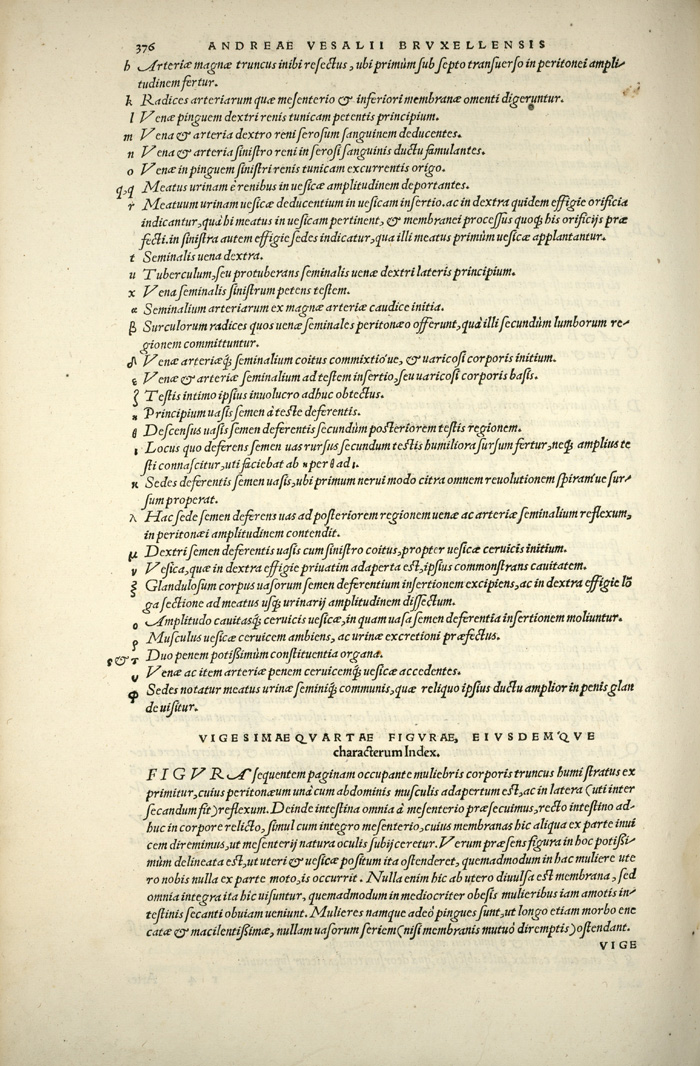 376 ANDREAE VESALII BRVXELLENSIS
h Arteriæ magnæ truncus inibi resectus, ubi primùm sub septo transuerso in peritonei ampli-
tudinem fertur.
k Radices arteriarum quæ mesenterio & inferiori membranæ omenti digeruntur.
l Venæ pinguem dextri renis tunicam petentis principium.
m Vena & arteria dextro reni serosum sanguinem deducentes.
n Vena & arteria sinistro reni in serosi sanguinis ductu famulantes.
o Venæ in pinguem sinistri renis tunicam excurrentis origo.
q,q Meatus urinam è renibus in uesicæ amplitudinem deportantes.
r Meatuum urinam uesicæ deducentium in uesicam insertio. ac in dextra quidem effigie orificia
indicantur, quà hi meatus in uesicam pertinent, & membranei processus quoq; his orificijs præ
fecti. in sinistra autem effigie sedes indicatur, qua illi meatus primùm uesicæ applantantur.
t Seminalis uena dextra.
u Tuberculum, seu protuberans seminalis uenæ dextri lateris principium.
x Vena seminalis sinistrum petens testem.
α Seminalium arteriarum ex magnæ arteriæ caudice initia.
β Surculorum radices quos uenæ seminales peritonæo offerunt, quà illi secundùm lumborum re-
gionem committuntur.
δ Venæ arteriæq́; seminalium coitus commixtio'ue, & uaricosi corporis initium.
ε Venæ & arteriæ seminalium ad testem insertio, seu uaricosi corporis basis.
ζ Testis intimo ipsius inuolucro adhuc obtectus.
η Principium uasis semen à teste deferentis.
θ Descensus uasis semen deferentis secundùm posteriorem testis regionem.
ι Locus quo deferens semen uas rursus secundum testis humiliora sursum fertur, neq; amplius te
sti connascitur, uti faciebat ab η per θ ad ι.
κ Sedes deferentis semen uasis, ubi primum nerui modo citra omnem reuolutionem spiram'ue sur-
sum properat.
λ Hac sede semen deferens uas ad posteriorem regionem uenæ ac arteriæ seminalium reflexum,
in peritonæi amplitudinem contendit.
μ Dextri semen deferentis uasis cum sinistro coitus, propter uesicæ ceruicis initium.
ν Vesica, quæ in dextra effigie priuatim adaperta est, ipsius commonstrans cauitatem.
ξ Glandulosum corpus uasorum semen deferentium insertionem excipiens, ac in dextra effigie lō
ga sectione ad meatus usq; urinarij amplitudinem dissectum.
ο Amplitudo cauitasq́; ceruicis uesicæ, in quam uasa semen deferentia insertionem moliuntur.
ρ Musculus uesicæ ceruicem ambiens, ac urinæ excretioni præfectus.
ς & τ Duo penem potißimùm constituentia organa.
υ Venæ ac item arteriæ penem ceruicemq́; uesicæ accedentes.
φ Sedes notatur meatus urinæ seminiq́; communis, quæ reliquo ipsius ductu amplior in penis glan
de uisitur.
VIGESIMAEQVARTAE FIGVRAE, EIVSDEM'QVE
characterum Index.
FIGVRA sequentem paginam occupante muliebris corporis truncus humi stratus ex
primitur, cuius peritonæum unà cum abdominis musculis adapertum est, ac in latera (uti inter
secandum fit) reflexum. Deinde intestina omnia à mesenterio præsecuimus, recto intestino ad-
huc in corpore relicto, simul cum integro mesenterio, cuius membranas hic aliqua ex parte inui
cem diremimus, ut mesenterij natura oculis subijceretur. Verum præsens figura in hoc potißi-
mùm delineata est, ut uteri & uesicæ positum ita ostenderet, quemadmodum in hac muliere ute
ro nobis nulla ex parte moto, is occurrit. Nulla enim hic ab utero diuulsa est membrana, sed
omnia integra ita hic uisuntur, quemadmodum in mediocriter obesis mulieribus iam amotis in-
testinis secanti obuiam ueniunt. Mulieres namque adeò pingues sunt, ut longo etiam morbo ene
catæ & macilentißimæ, nullam uasorum seriem (nisi membranis mutuò diremptis) ostendant.
VIGE